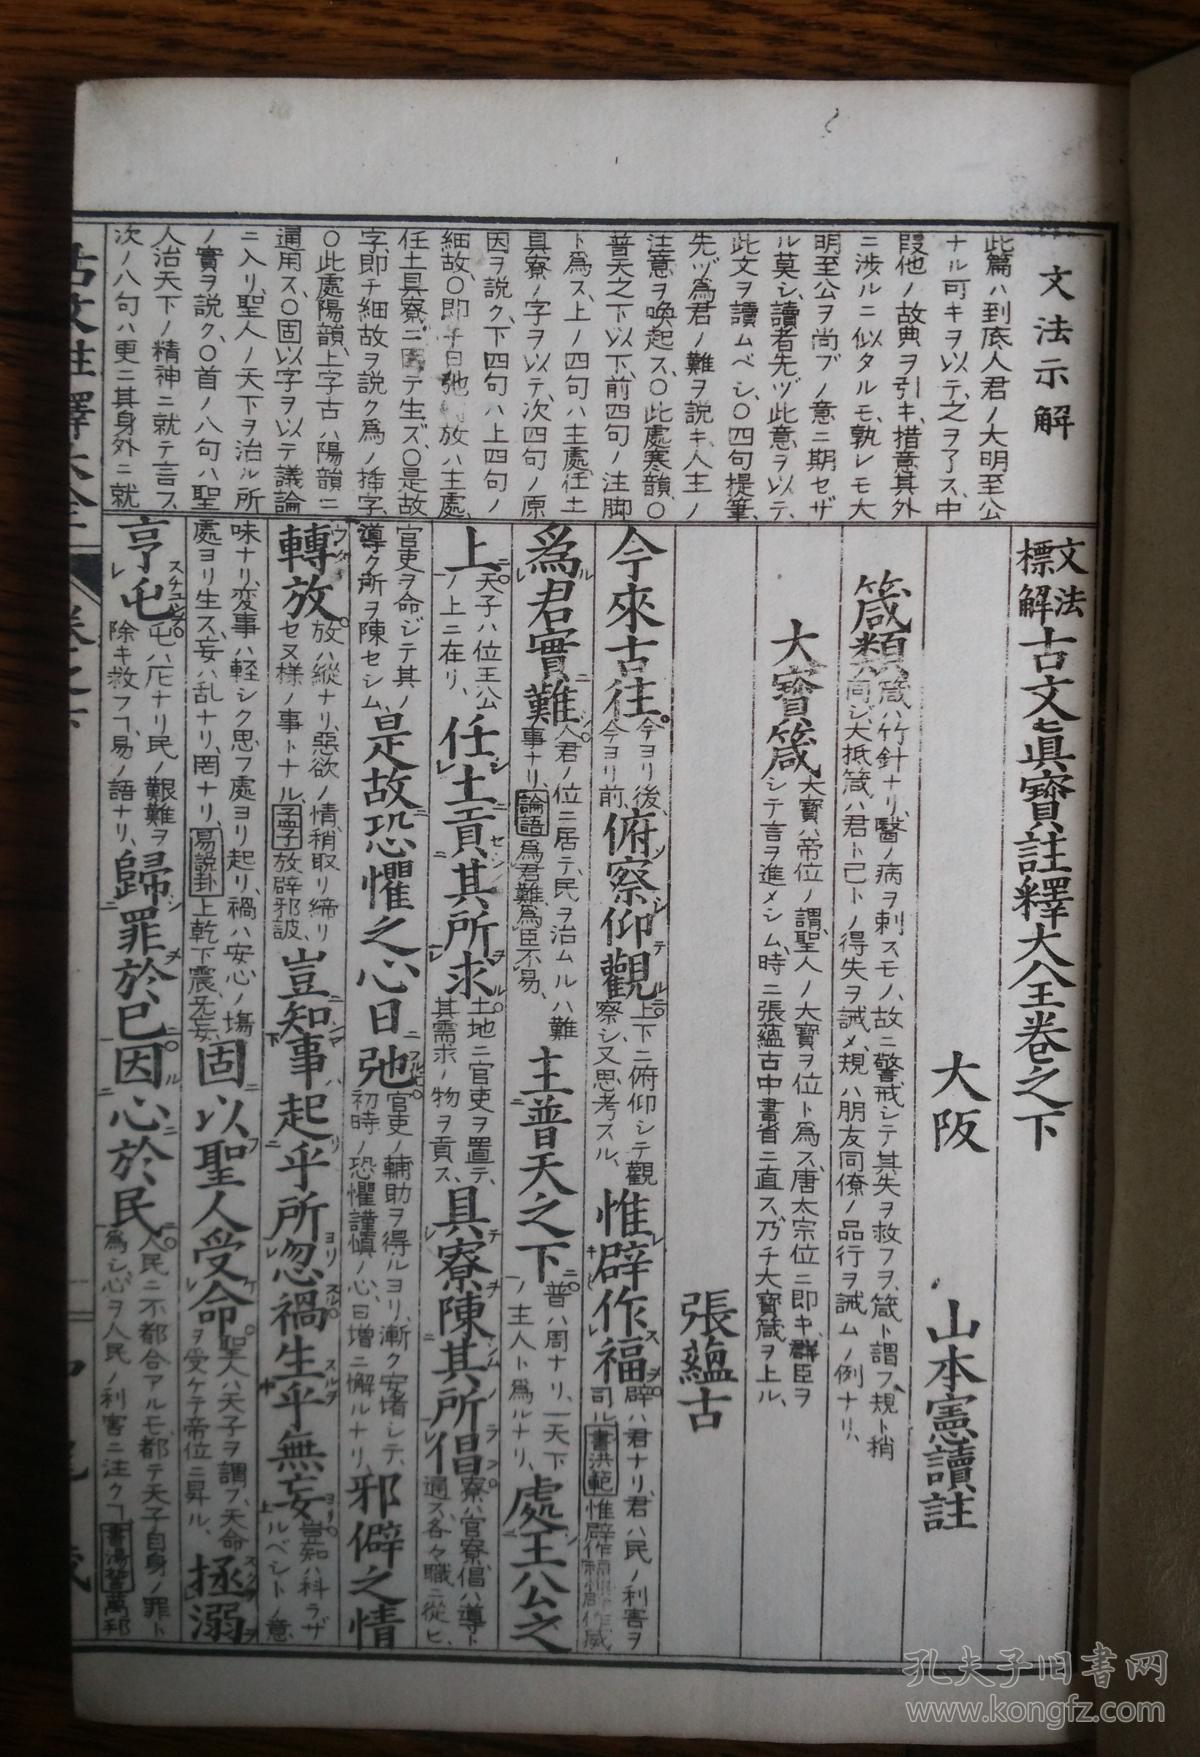 文法示解
此篇ハ到底人君ノ大明至公
ナル可キヲ以テ、之ヲ了ス、中
段他ノ故典ヲ引キ、措意其外
ニ渉ルニ似タルモ、孰レモ大
明至公ヲ尚ブノ意ニ期セザ
ル莫シ、讀者先ヅ此意ヲ以テ、
此文ヲ讀ムベシ、〇四句提筆、
先ヅ爲君ノ難ヲ説キ、人主ノ
注意ヲ喚起ス、〇此處寒韻、〇
普天之下以下、前四句ノ注脚
ト爲ス、上ノ四句ハ主處任土
具寮ノ字ヲ以テ、次四句ノ原
因ヲ説ク、下四句ハ上四句ノ
細故、〇即チ日弛放ハ主處
任土具寮ニ因テ生ズ、〇是故
字、即チ細故ヲ説ク爲ノ揷字、
〇此處陽韻、上字古ハ陽韻ニ
通用ス、〇固以字ヲ以テ議論
ニ入リ、聖人ノ天下ヲ治ル所
ノ實ヲ説ク、〇首ノ八句ハ聖
人治天下ノ精神ニ就テ言ス、
次ノ八句ハ更ニ其身外ニ就
文法標解古文眞寶註釋大全卷之下
大阪 山本憲讀註
箴類 箴ハ竹針ナリ、醫ノ病ヲ刺スモノ、故ニ警戒シテ其失ヲ救フヲ、箴ト謂フ、規ト稍
同ジ、大抵箴ハ君ト己トノ得失ヲ誡メ、規ハ朋友同僚ノ品行ヲ誡ムノ例ナリ、
大寶箴 大寶ハ帝位ノ謂、聖人ノ大寶ヲ位ト爲ス、唐太宗位ニ即キ、群臣ヲ
シテ言ヲ進メシム、時ニ張蘊古中書省ニ直ス、乃チ大寶箴ヲ上ル、
張蘊古
今來古往 今ヨリ後、今ヨリ前、 俯察仰觀 上下ニ俯仰シテ觀察シ、又思考スル、 惟辟作福 辟ハ君ナリ、君ハ民ノ利害ヲ司ル、書洪範惟辟作福
爲君實難 人君ノ位ニ居テ、民ヲ治ムルハ難事ナリ、論語爲君難爲臣不易、 主普天之下 普ハ周ナリ、一天下ノ主人ト爲ルナリ、 處王公之
上 天子ハ位王公ノ上ニ在リ、 任土貢其所求 土地ニ官吏ヲ置テ、其需求ノ物ヲ貢ス、 具寮陳其所倡 寮ハ官寮、倡ハ導ト通ス、各々職ニ從ヒ、
官吏ヲ命ジテ其ノ導ク所ヲ陳セシム、 是故恐懼之心日弛 官吏ノ輔助ヲ得ルヨリ、漸ク安堵シテ、初時ノ恐懼謹愼ノ心、日増ニ懈ルナリ、 邪僻之情
轉放 放ハ縱ナリ、惡欲ノ情、稍取リ締リセヌ様ノ事トナル、孟子放辟邪詖、 豈知事起乎所忽禍生乎無妄 豈知ハ料ラザルベシトノ意
味ナリ、変事ハ軽シク思フ處ヨリ起リ、禍ハ安心ノ場處ヨリ生ス、妄ハ乱ナリ、罔ナリ、易説卦上乾下震、无妄、 固以聖人受命 聖人ハ天子ヲ謂フ、天命ヲ受ケテ帝位ニ昇ル、 拯溺
亨屯 屯ハ厄ナリ、民ノ艱難ヲ除キ救フヿ、易ノ語ナリ、 歸罪於己因心於民 人民ニ不都合アルモ、都テ天子自身ノ罪ト爲シ、心ヲ人民ノ利害ニ注クヿ、書湯誓萬邦
古文註釋大全
卷之下
孔夫子旧书网
www.kongfz.com